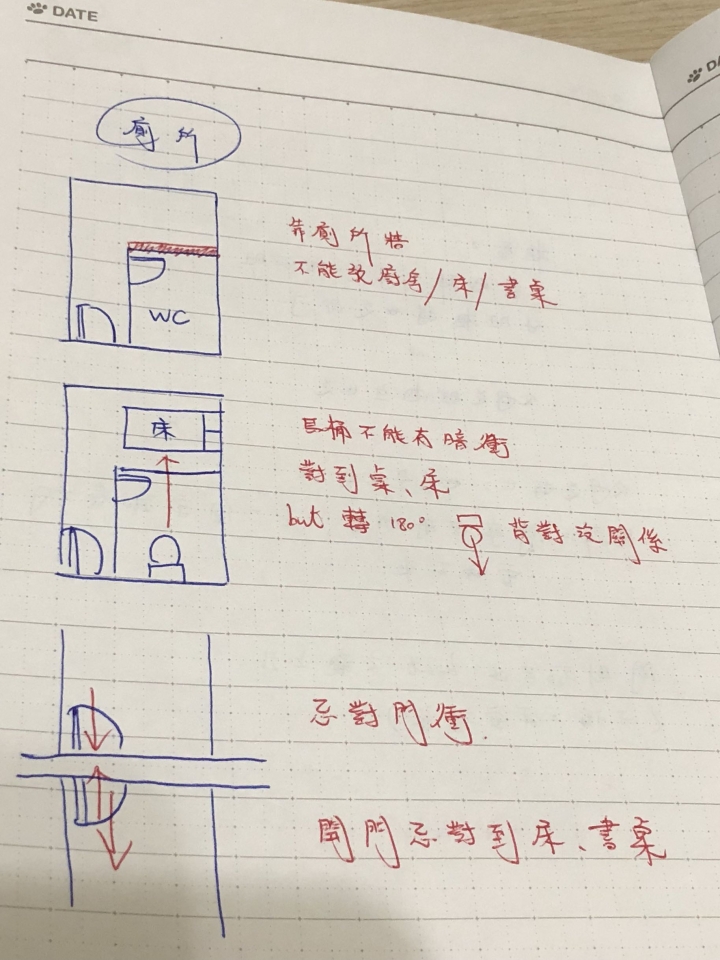 DATE
DA
廁所
靠廁所牆
不能放廚房/床/書桌
WC
床
馬桶不能有暗衝
對到桌、床
but 轉 180° 背對沒關係
忌對門衝
開門忌對到床、書桌